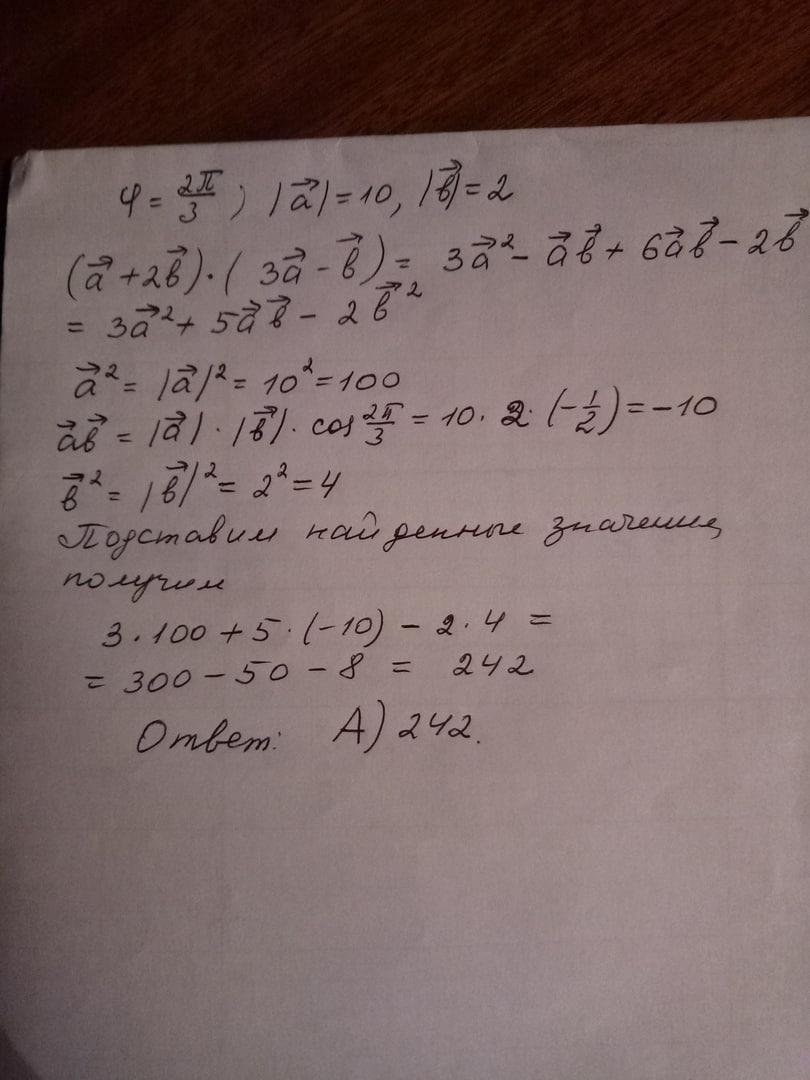 φ = 2π/3 ; |a⃗| = 10, |b⃗| = 2
(a⃗ + 2b⃗) · (3a⃗ - b⃗) = 3a⃗² - a⃗b⃗ + 6a⃗b⃗ - 2b⃗
= 3a⃗² + 5a⃗b⃗ - 2b⃗²
a⃗² = |a⃗|² = 10² = 100
a⃗b⃗ = |a⃗| · |b⃗| · cos 2π/3 = 10 · 2 · (-1/2) = -10
b⃗² = |b⃗|² = 2² = 4
Подставим найденные значения,
получим
3 · 100 + 5 · (-10) - 2 · 4 =
= 300 - 50 - 8 = 242
Ответ: А) 242.